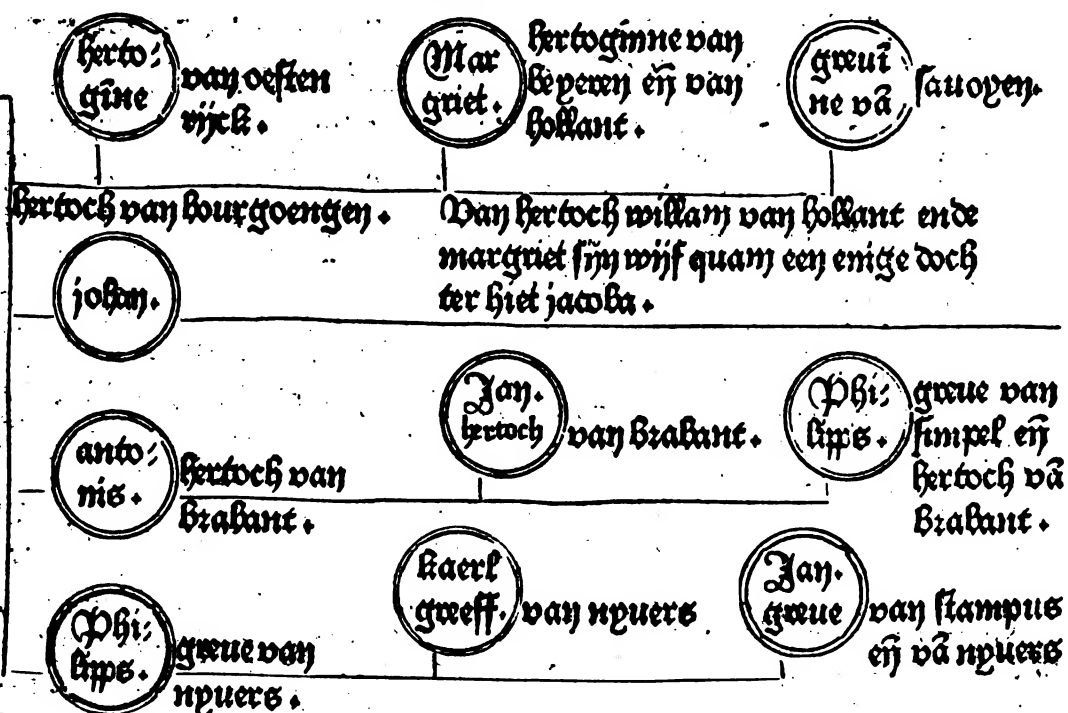 herto⸗
gīne
van oesten
rijck.
Mar
griet.
hertoginne van
beyeren eñ van
hollant.
greui
ne vā
sauoyen.
hertoch van bourgoengen.
Van hertoch willam van hollant ende
margriet sijn wijf quam een enige doch
ter hiet jacoba.
johan.
Jan.
hertoch
van brabant.
Phi⸗
lipps.
greue van
simpel eñ
hertoch vā
brabant.
anto⸗
nis.
hertoch van
brabant.
kaerl
greeff.
van nyuers
Jan.
greue
van stampus
eñ vā nyuers
Phi⸗
lipps.
greue van
nyuers.